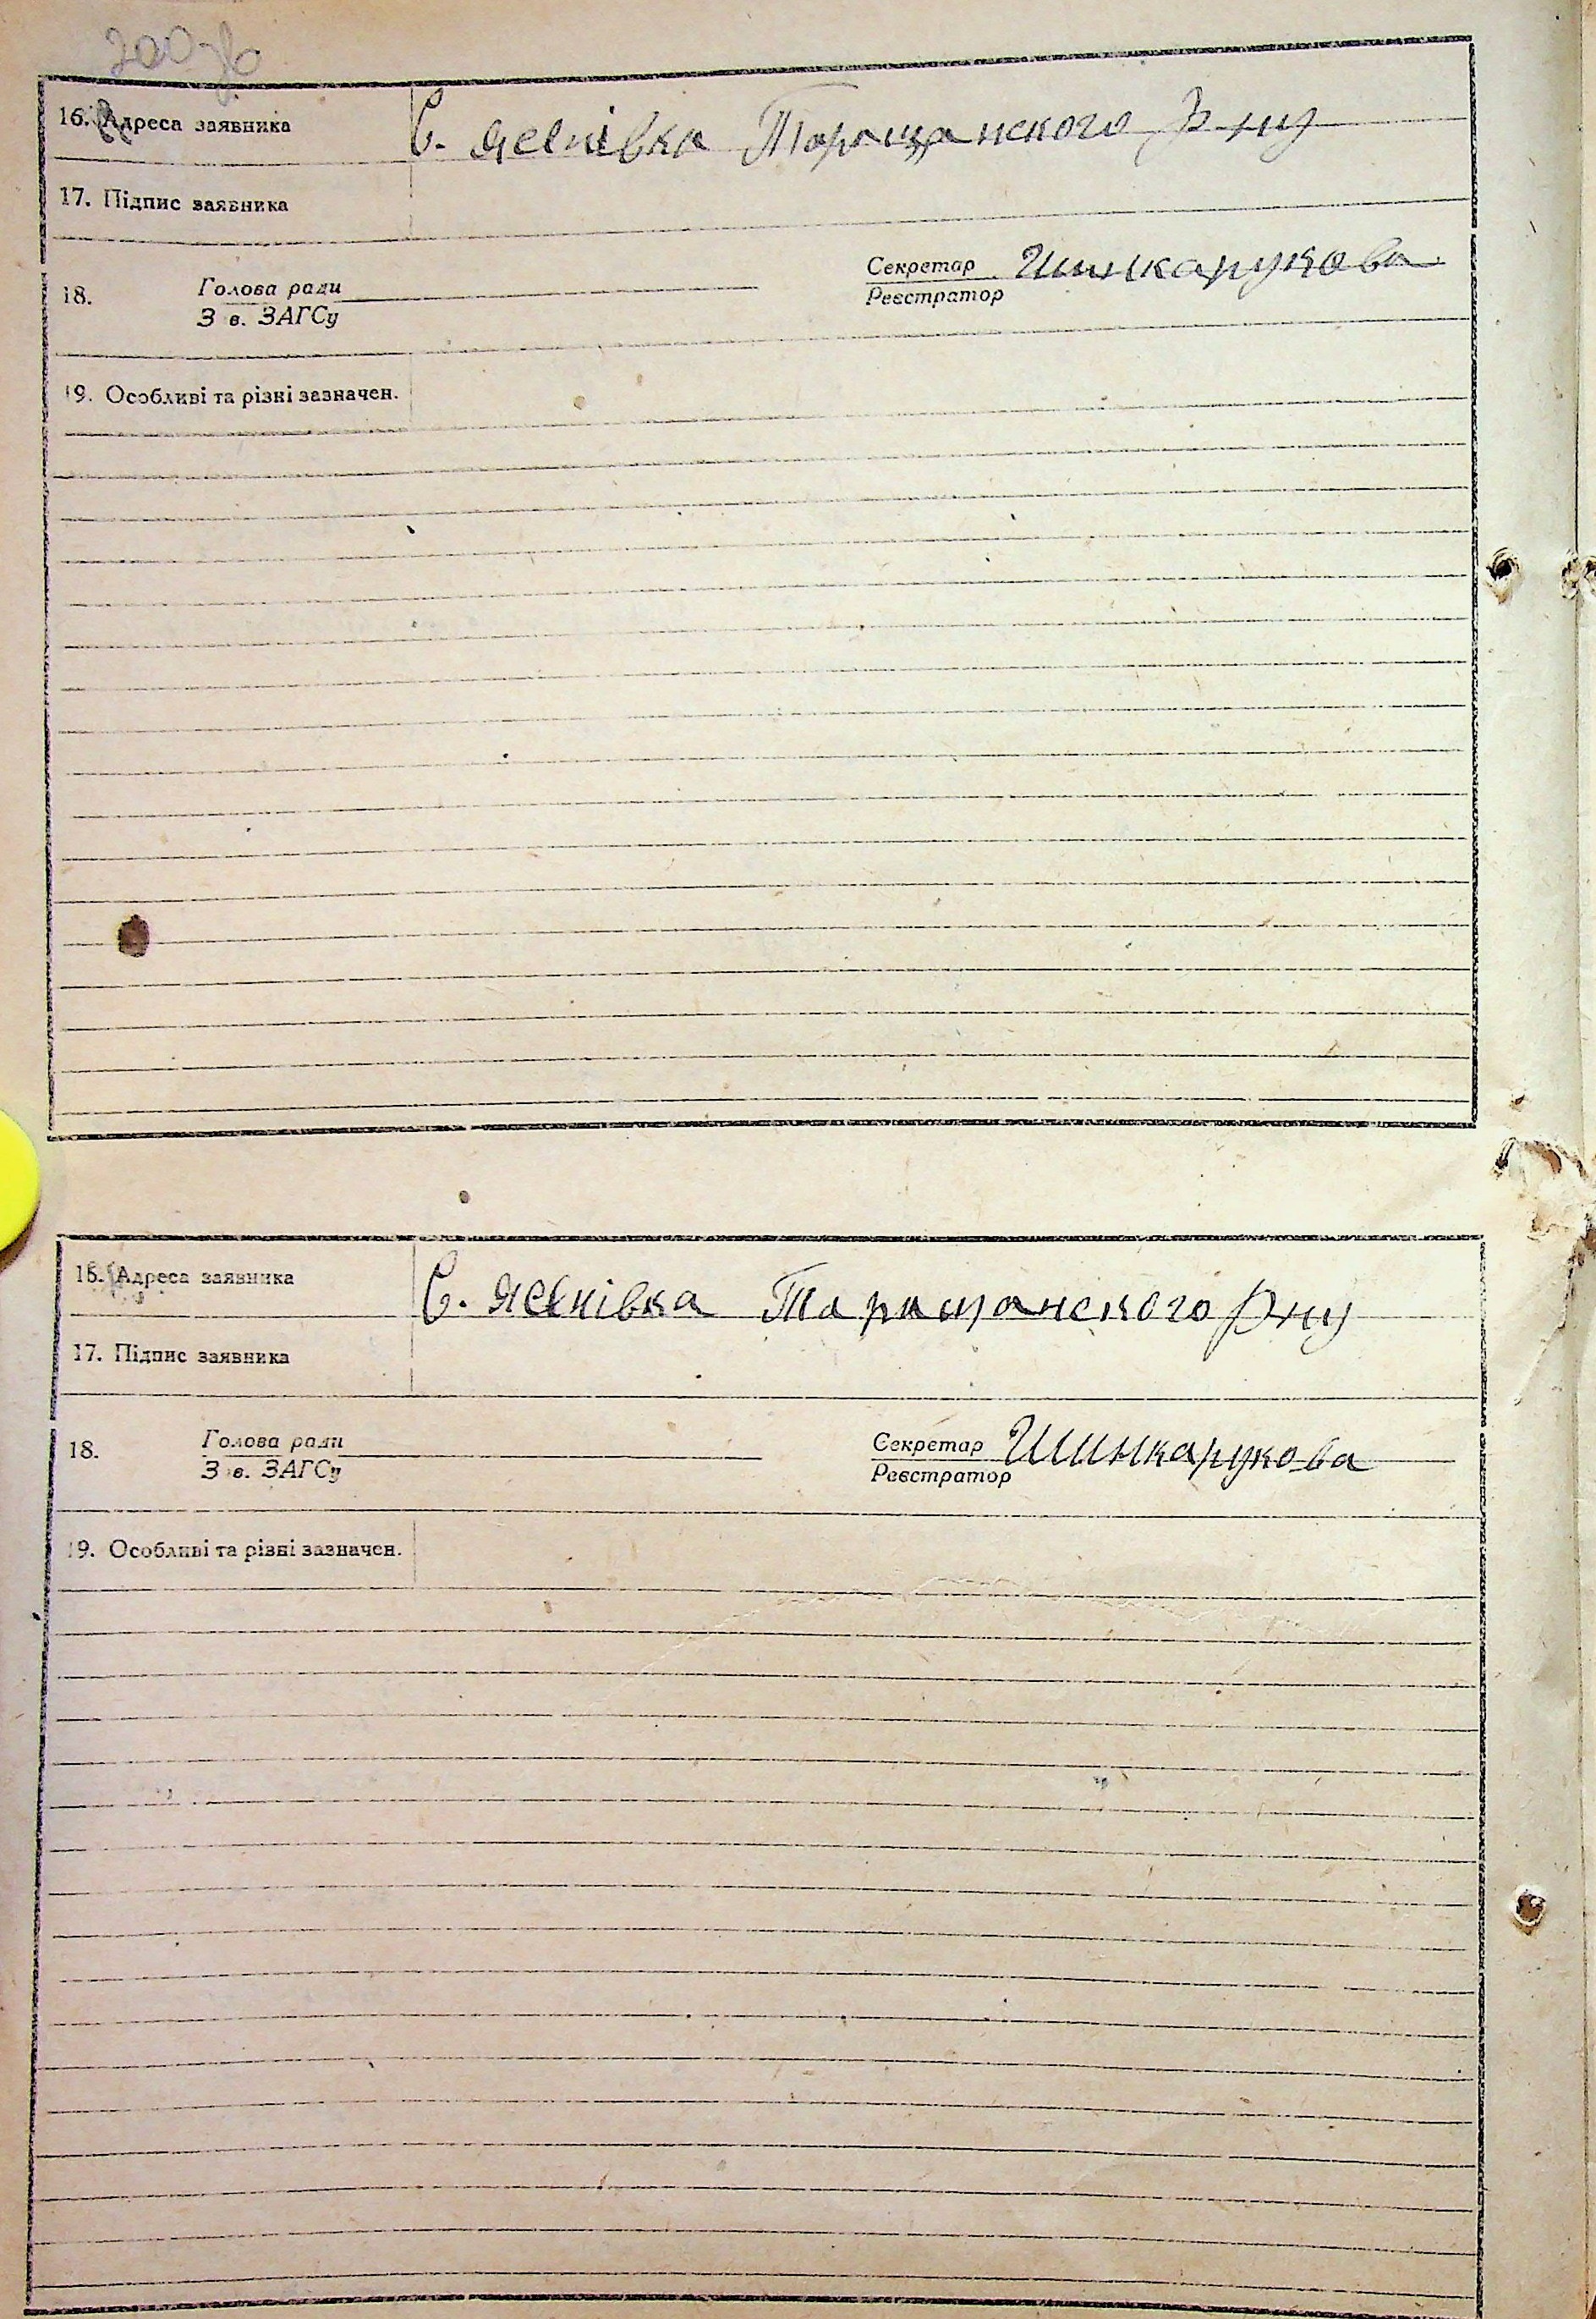 200 зв
16. Адреса заявника С. Ясенівка Таращанского Р-ну
17. Підпис заявника
Секретар Шинкарукова
18. Голова ради
Реєстратор
З в. ЗАГСу
19. Особливі та різні зазначен.
16. Адреса заявника С. Ясенівка Таращанского Р-ну
17. Підпис заявника
18. Голова ради Секретар Шинкарукова
З в. ЗАГСу Реєстратор
19. Особливі та різні зазначен.